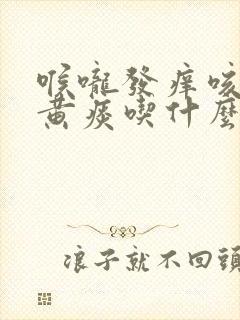 喉嚨發痒咳
黄痰喫什麽
浪子就不回頭